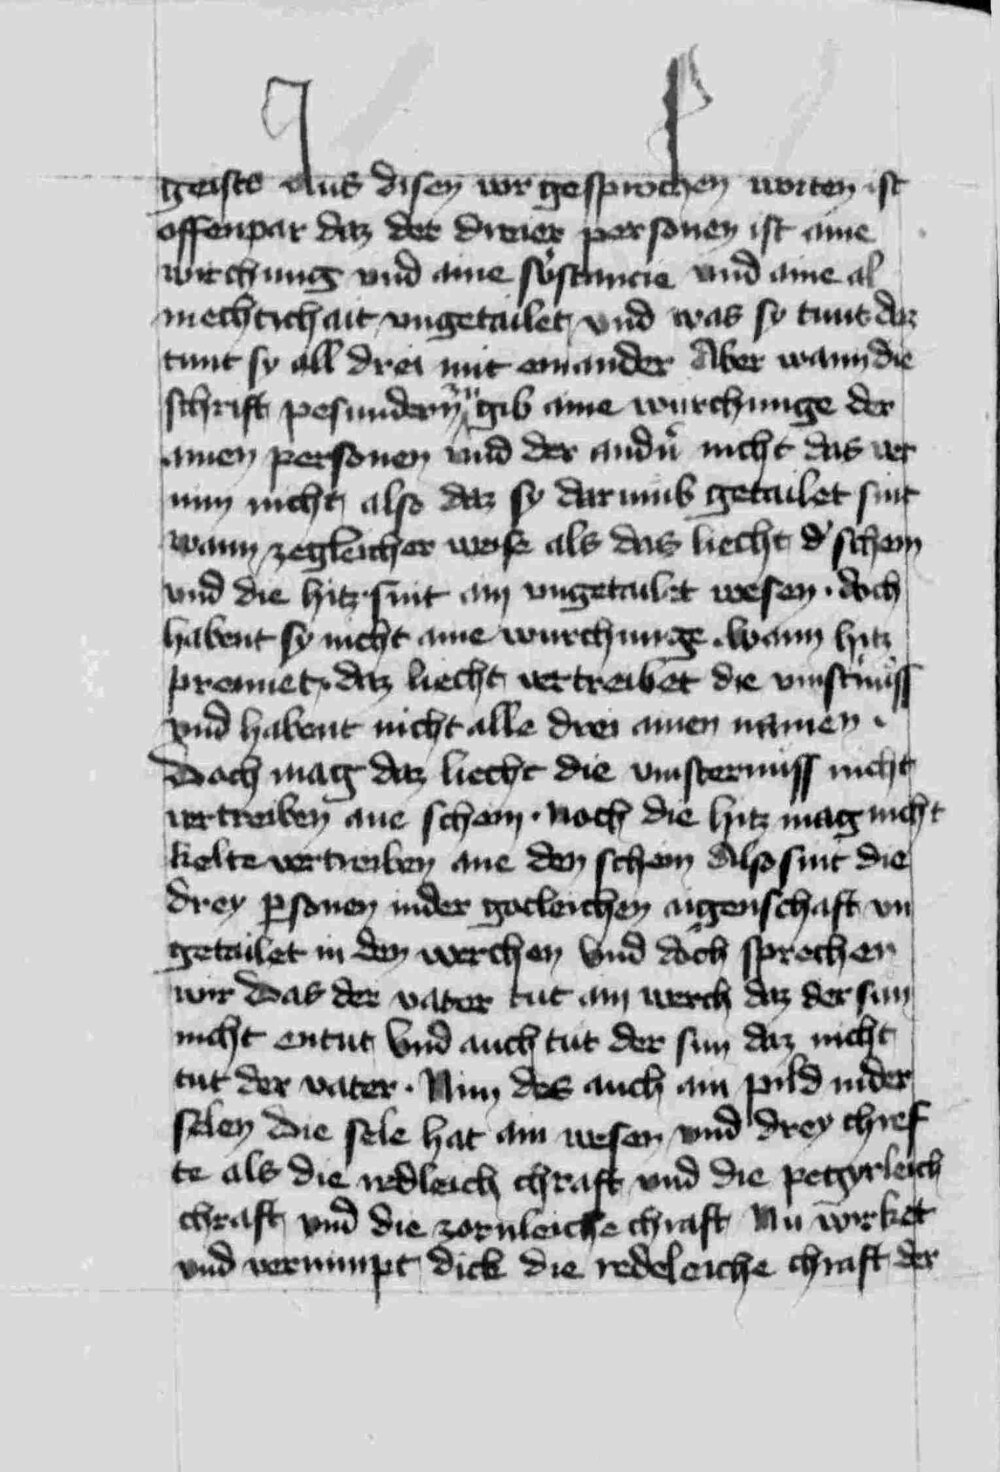 geists Aus disen vorgesprochen worten ist
offenpar daz der dreier personen ist aine
wirchung vnd aine substancie vnd aine al
mechtichait vngetailet vnd was sy tunt daz
tunt sy all drei mit einander Aber wann die
schrift pesundern gib aine wurchunge der
ainen personen vnd der andern nicht das ver
nim nicht also daz sy darumb getailet sint
wann zegleicher weise als das liecht d' schein
vnd die hitz sint ain vngetailet wesen . doch
habent sy nicht aine wurchunge . wann hitz
prennet . daz liecht vertreibet die vinsternüss
vnd habent nicht alle drei ainen namen .
Doch mag daz liecht die vinsternuss nicht
vertreiben ane schein . Noch die hitz mag nicht
kelte vertreiben ane den schein Also sint die
drey psonen inder gotleichen aigenschaft vn
getailet in den werchen Vnd doch sprechen
wir Das der vater tut ain werch daz der sun
nicht entut Vnd auch tut der sun daz nicht
tut der vater . Nim des auch ain pild inder
selen Die sele hat ain wesen vnd drey chref
te als die redleich chraft vnd die pegyrleich
chraft vnd die zornleiche chraft Nu wirket
vnd vernimpt dick die redeleiche chraft der